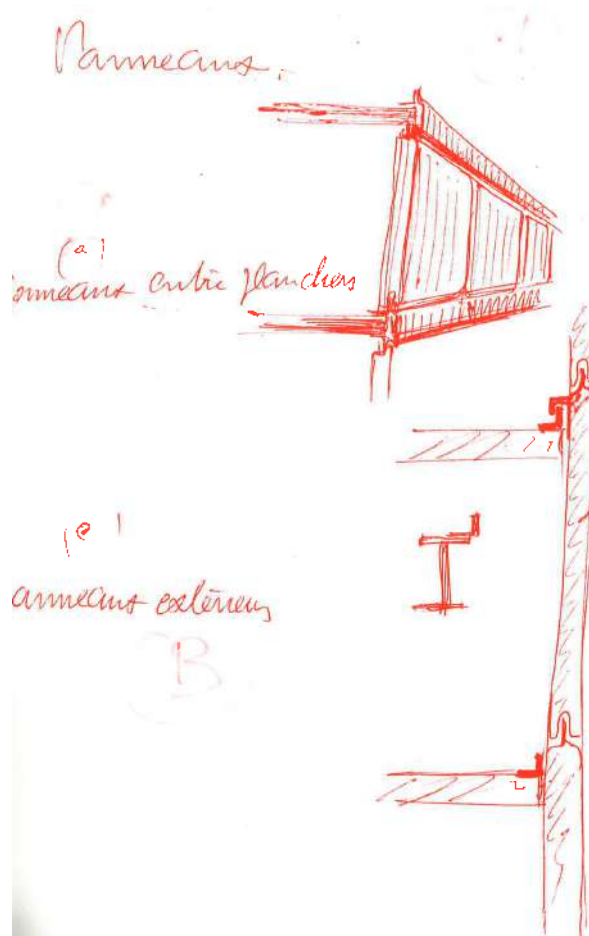 Panneaux.
(a)
onneaux entre planchers
1
(e)
anneaux extérieurs
2
B